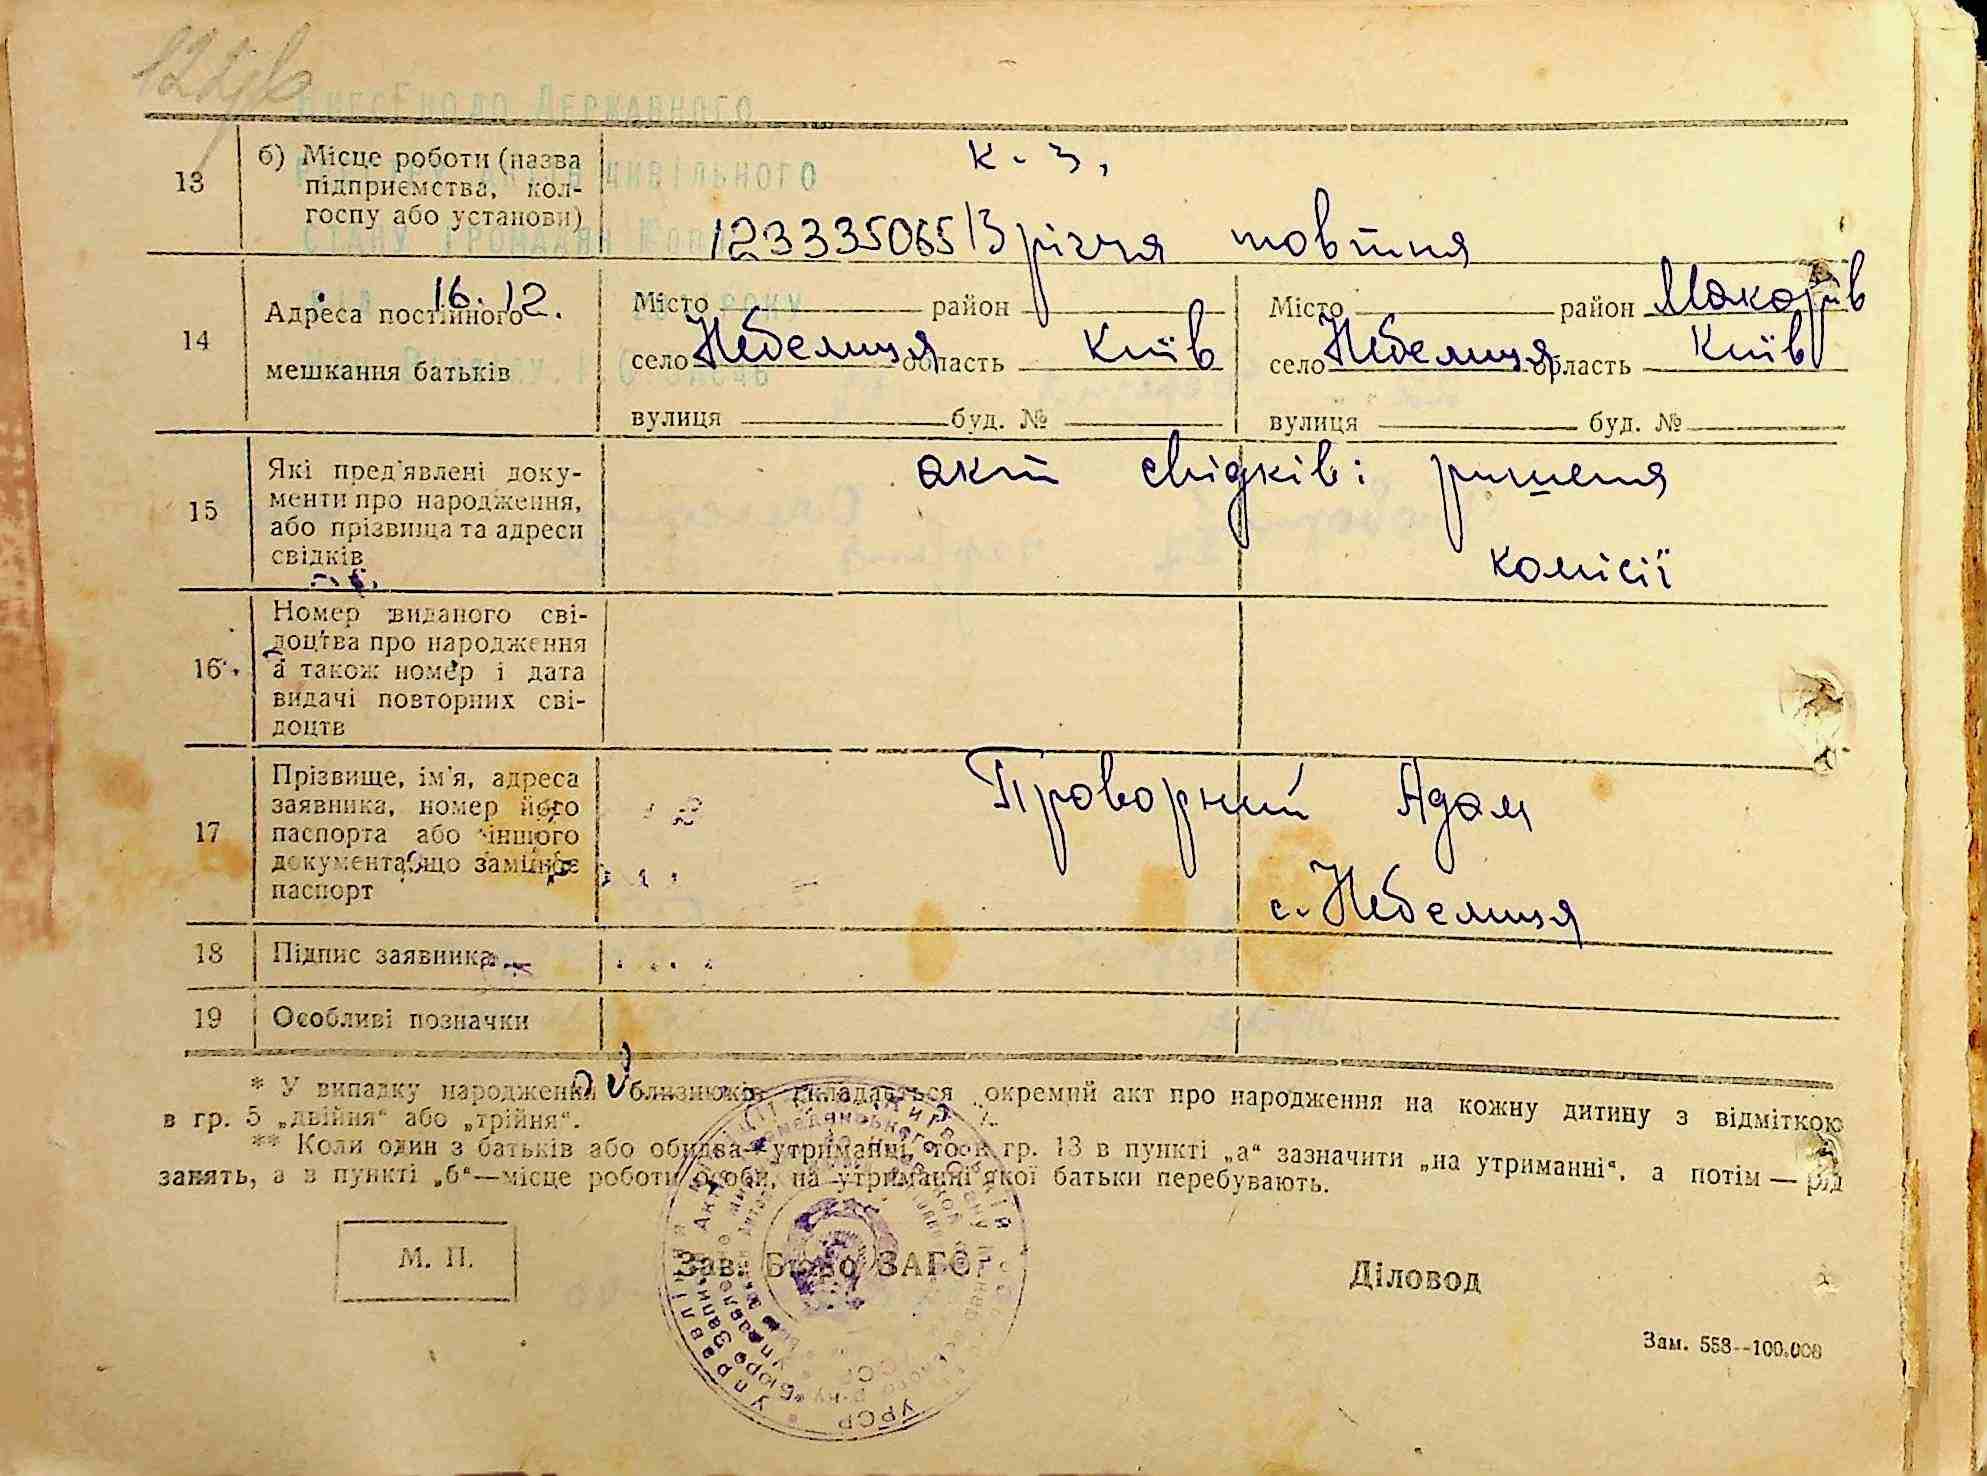 122зв
Внесено до Державного
реєстру актів цивільного
стану громадян
16.12. року
13 б) Місце роботи (назва підприємства, колгоспу або установи)
к-з,
123335065 13 річчя жовтня
14 Адреса постійного мешкання батьків
Місто район
село Небелиця область Київ
вулиця буд. №
Місто район Макарів
село Небелиця область Київ
вулиця буд. №
15 Які пред'явлені документи про народження, або прізвища та адреси свідків
акт свідків і ришення
комісії
16 Номер виданого свідоцтва про народження а також номер і дата видачі повторних свідоцтв
17 Прізвище, ім'я, адреса заявника, номер його паспорта або іншого документа, що замінює паспорт
Проворний Адам
с. Небелиця
18 Підпис заявника
19 Особливі позначки
* У випадку народження близнюків складається окремий акт про народження на кожну дитину з відміткою
в гр. 5 „двійня" або „трійня".
** Коли один з батьків або обидва на утриманні, то в гр. 13 в пункті „а" зазначити „на утриманні", а потім — рід
занять, а в пункті „б"—місце роботи особи, на утриманні якої батьки перебувають.
М. П.
Зав. Бюро ЗАГС
Діловод
Зам. 558--100.000
УРСР